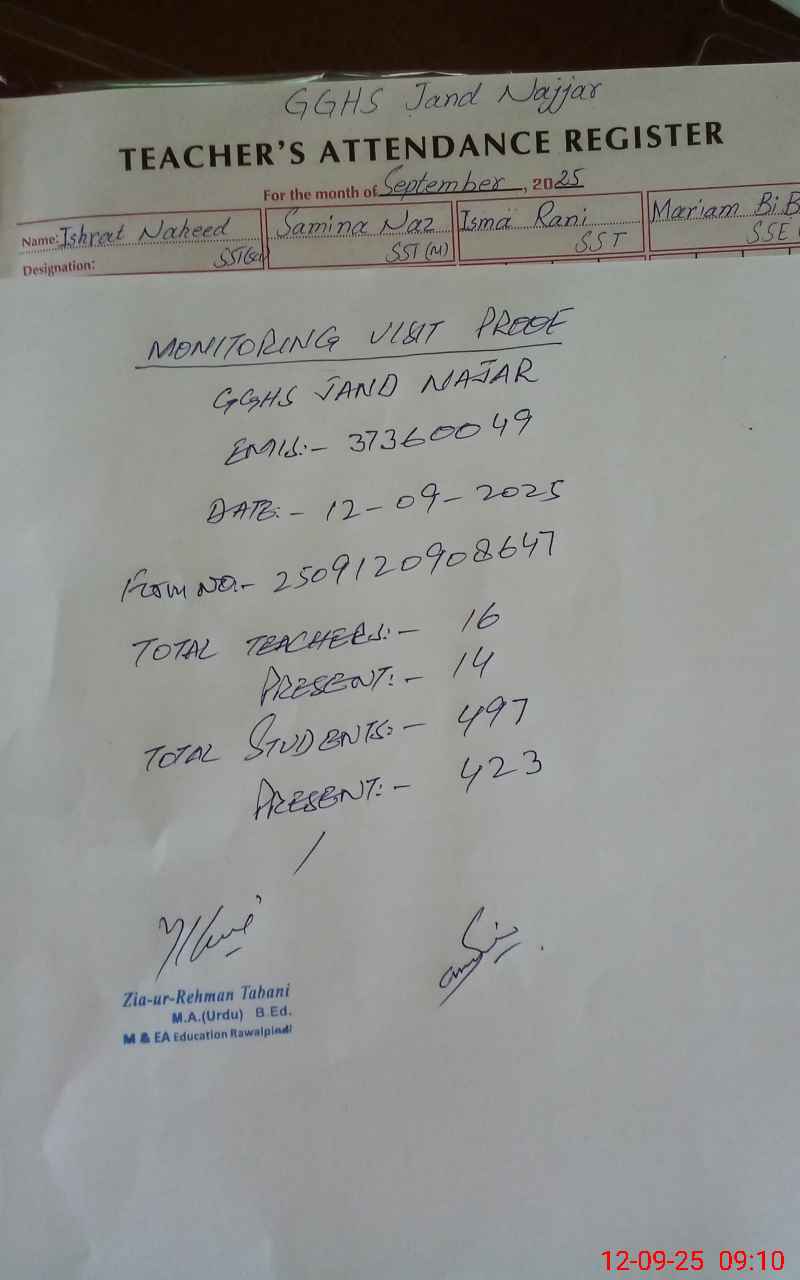 GGHS Jand Najjar
TEACHER'S ATTENDANCE REGISTER
For the month of September, 2025
Name: Ishrat Naheed Samina Naz Isma Rani Mariam Bi.B
Designation: SST(Sc) SST (M) SST SSE
MONITORING VISIT PROOF
GGHS JAND NAJAR
EMIS:- 37360049
DATE:- 12-09-2025
Form NO:- 2509120908647
TOTAL TEACHERS:- 16
PRESENT:- 14
TOTAL STUDENTS:- 497
PRESENT:- 423
Zia-ur-Rehman Tabani
M.A.(Urdu) B.Ed.
M & EA Education Rawalpindi
12-09-25 09:10